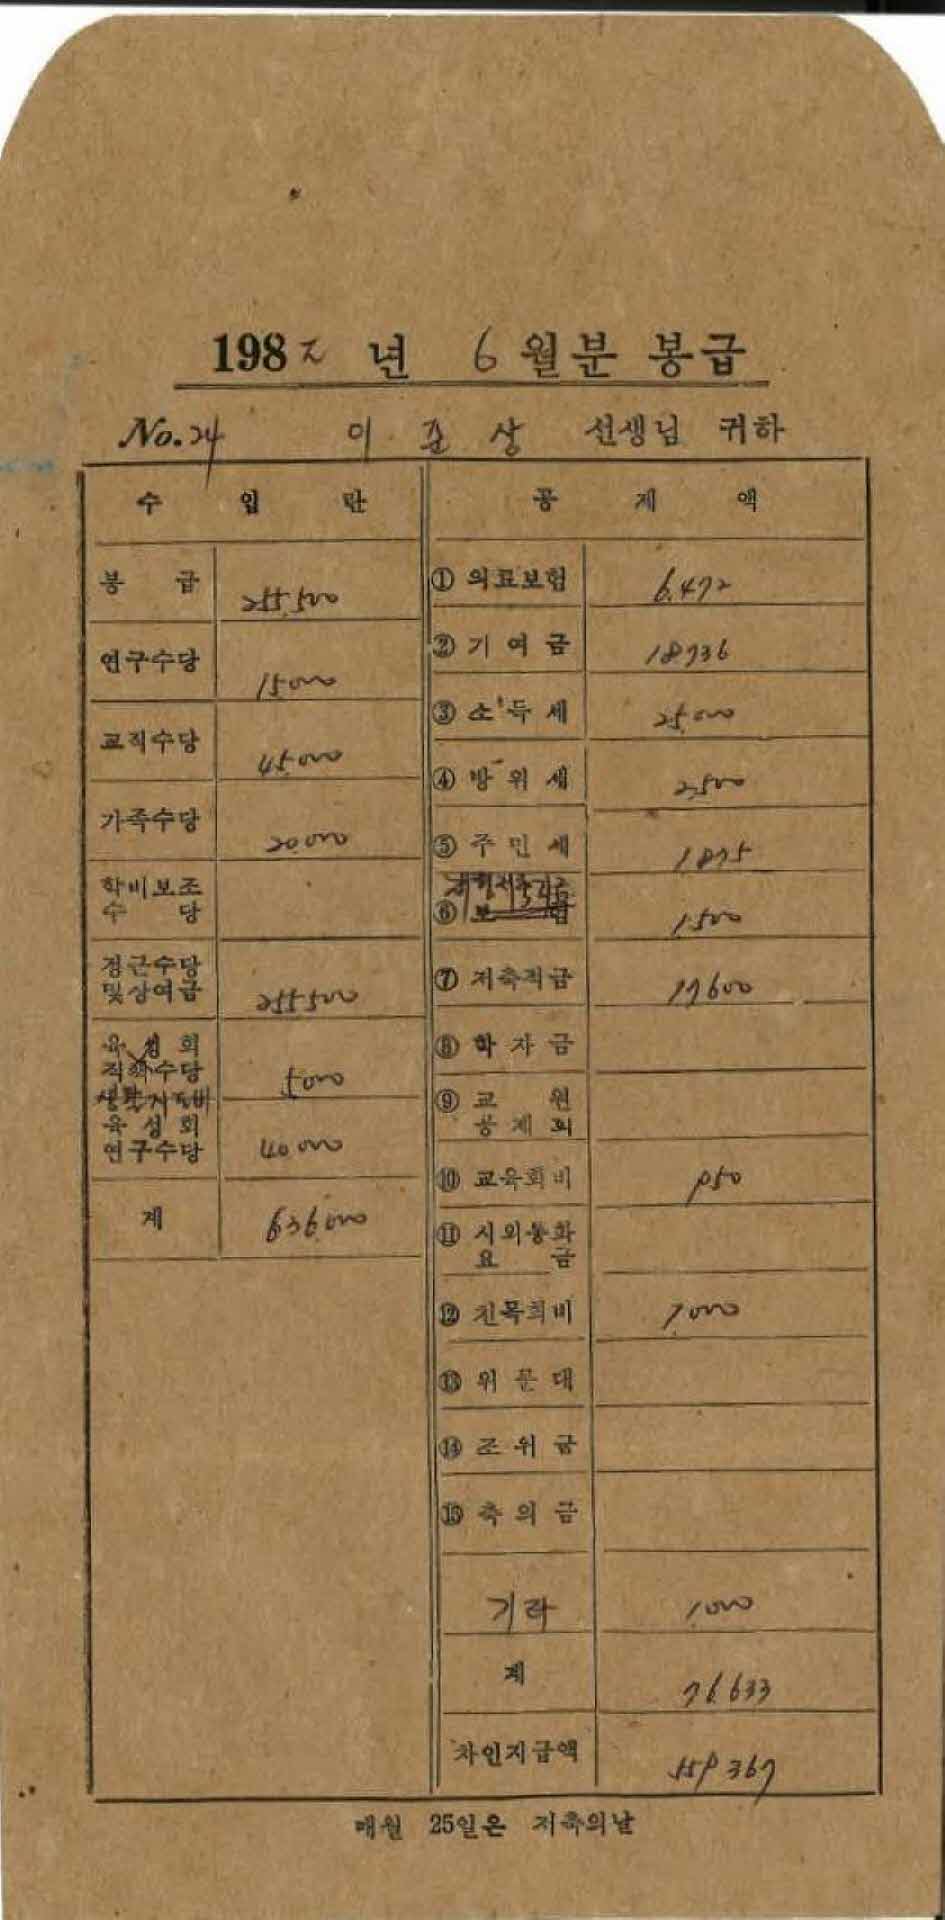 1982 년 6 월분 봉급
No. 24 이 준 상 선생님 귀하
수 입 란
공 제 액
봉 급 255,500
연구수당 15,000
교직수당 45,000
가족수당 20,000
학비보조
수 당
정근수당
및상여금 255,500
육 성 회
직책수당 5,000
생활지도비
육 성 회
연구수당 40,000
계 636,000
① 의료보험 6,472
② 기 여 금 18736
③ 소 득 세 25,000
④ 방 위 세 2,500
⑤ 주 민 세 1,875
⑥ 보 험 1,500
⑦ 저축적금 17,600
⑧ 학 자 금
⑨ 교 원
공 제 회
⑩ 교육회비 950
⑪ 시외통화
요 금
⑫ 친목회비 1,000
⑬ 위 문 대
⑭ 조 위 금
⑮ 축 의 금
기타 1,000
계 76,633
차인지급액 559,367
매월 25일은 저축의날